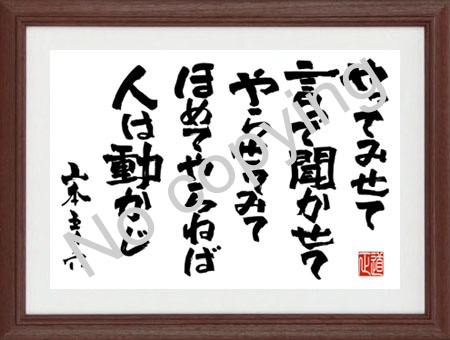 やってみせて
言って聞かせて
やらせてみて
ほめてやらねば
人は動かじ
山本五十六
正道
No copying